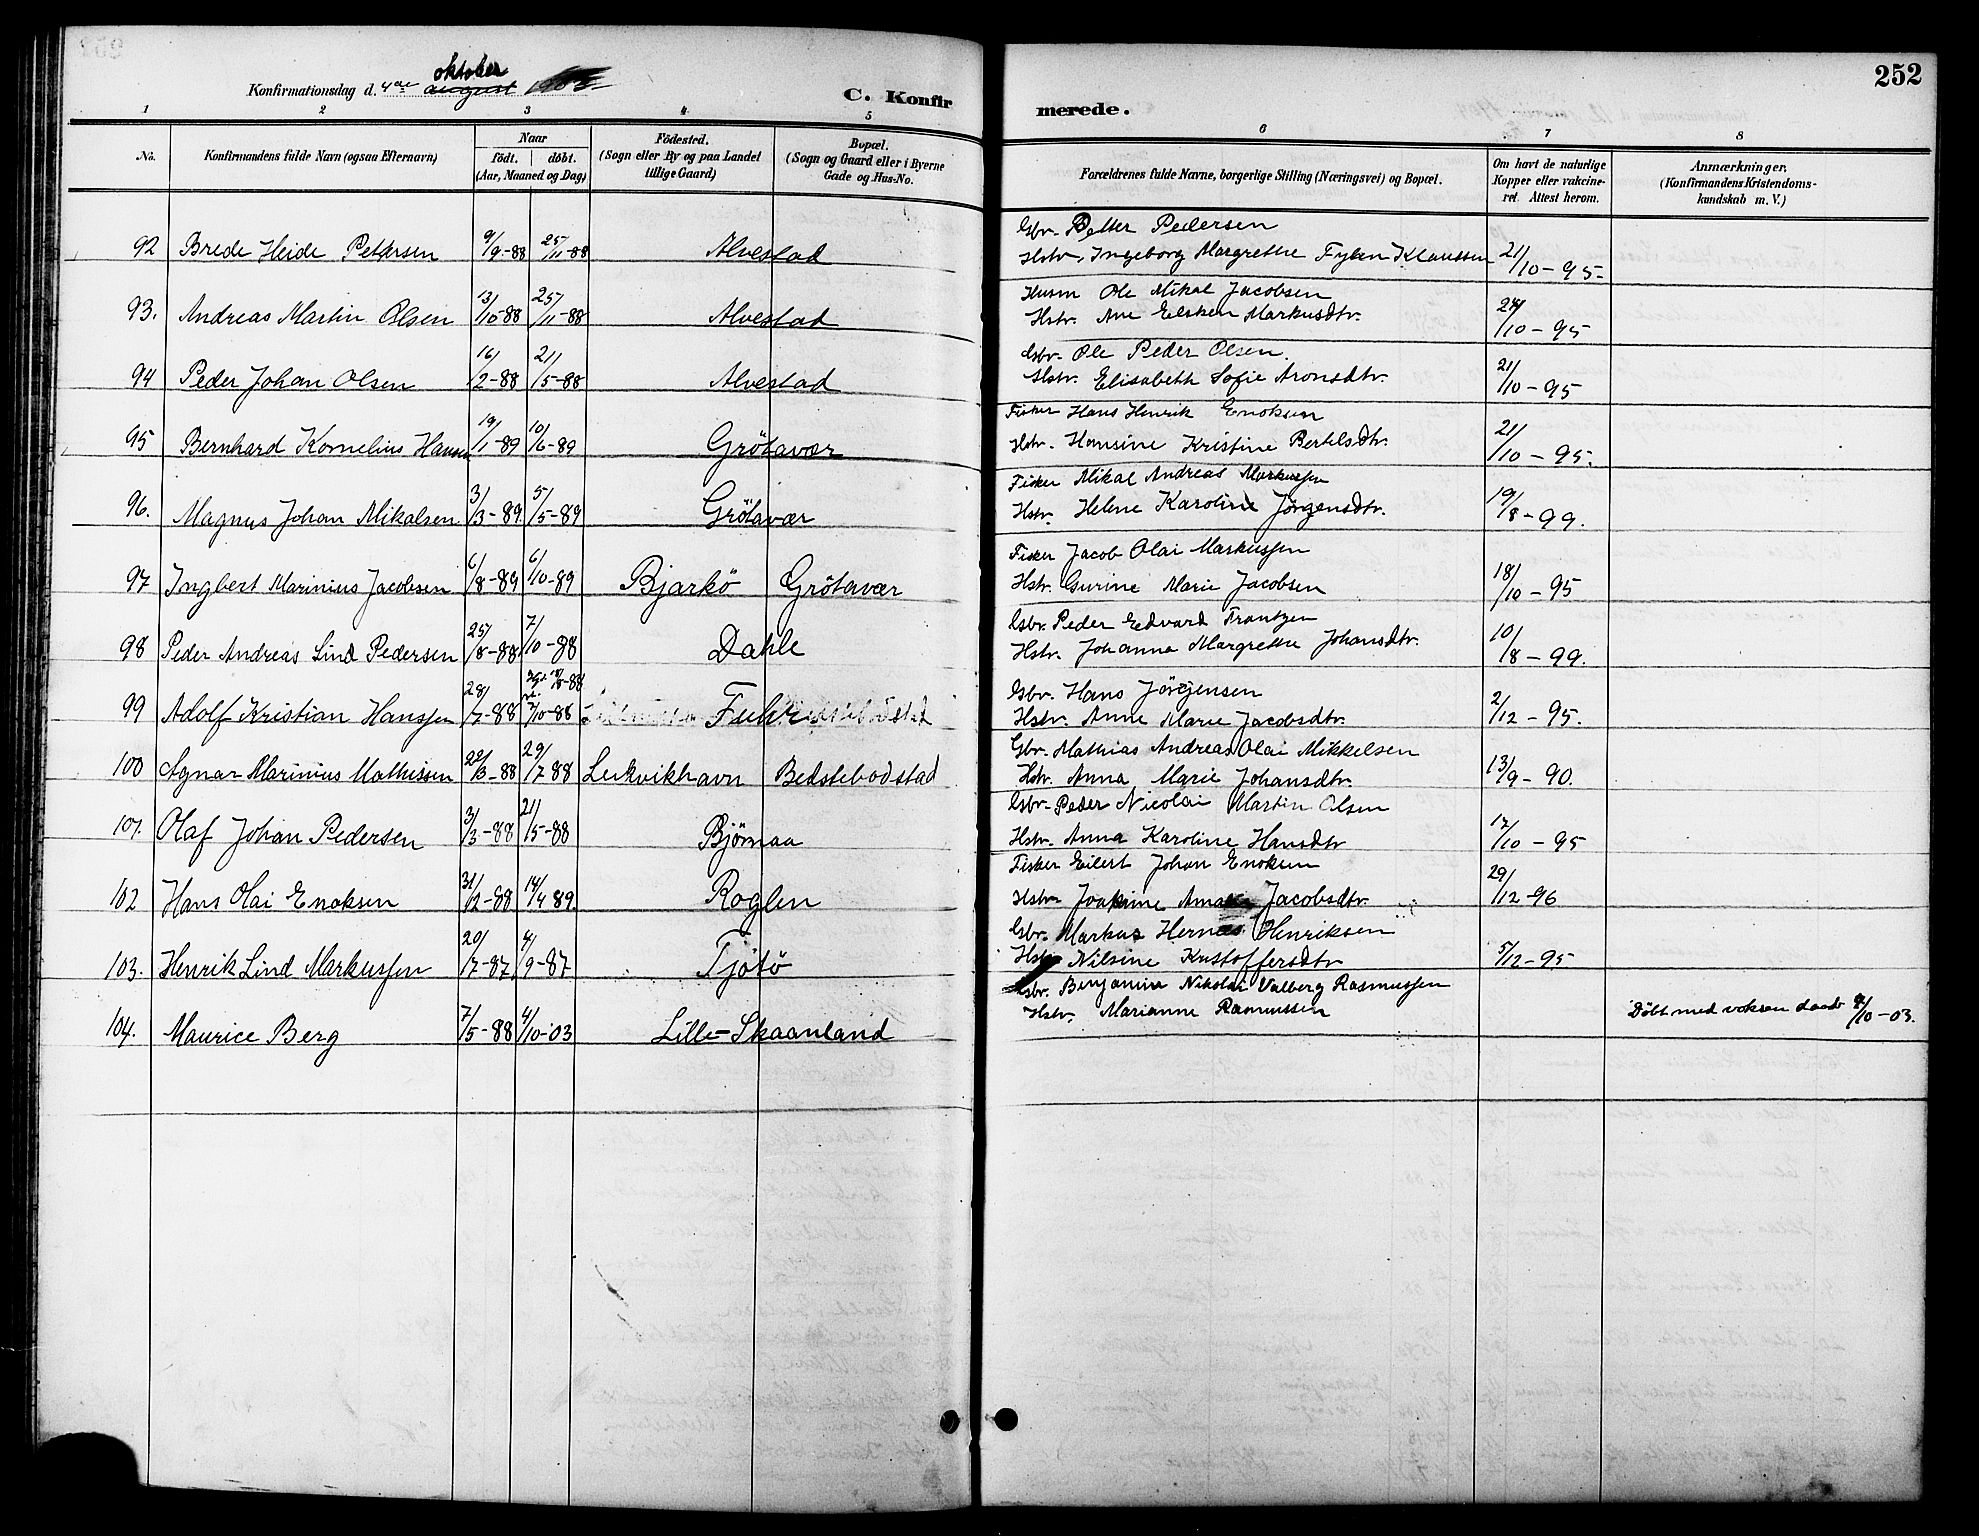 252
oktober
Konfirmationsdag d. 4de august 1903
C. Konfirmerede.
1 2 3 4 5 6 7 8
No.
Konfirmandens fulde Navn (ogsaa Efternavn)
Naar
födt. döbt.
(Aar, Maaned og Dag)
Födested.
(Sogn eller By og paa Landet tillige Gaard)
Bopæl.
(Sogn og Gaard eller i Byerne Gade og Hus-No.
Forældrenes fulde Navne, borgerlige Stilling (Næringsvei) og Bopæl.
Om havt de naturlige Kopper eller vakcineret. Attest herom.
Anmærkninger.
(Konfirmandens Kristendomskundskab m. V.)
92 Brede Heide Petersen 9/9-88 25/11-88 Alvestad Gbr. Petter Pedersen
Hstr. Ingeborg Margrethe Fyken Klaussen 21/10-95.
93. Andreas Martin Olsen 13/10-88 25/11-88 Alvestad Husm Ole Mikal Jacobsen
Hstr. Ane Elsken Markusdtr. 24/10-95
94 Peder Johan Olsen 16/2-88 21/5-88 Alvestad Gbr. Ole Peder Olsen.
Hstr. Elisabeth Sofie Aronsdtr. 21/10-95
95 Bernhard Kornelius Hansen 19/1-89 10/6-89 Grötavær Fisker Hans Henrik Enoksen
Hstr. Hansine Kristine Bertelsdtr. 21/10-95.
96. Magnus Johan Mikalsen 3/3-89 5/5-89 Grötavær Fisker Mikal Andreas Markussen
Hstr. Helene Karoline Jörgensdtr. 19/8-99.
97 Ingbert Marinius Jacobsen 6/8-89 6/10-89 Bjarkö Grötavær Fisker Jacob Olai Markussen
Hstr. Gurine Marie Jacobsen 18/10-95
98 Peder Andreas Lind Pedersen 25/8-88 7/10-88 Dahle Gbr. Peder Edvard Frantzen
Hstr. Johanna Margrethe Johansdtr. 10/8-99.
99 Adolf Kristian Hanssen 28/7-88 7/10-88 Gbr. Hans Jörgensen
Hstr. Anne Marie Jacobsdtr. 2/12-95.
100 Agnar Marinius Mathissen 22/3-88 29/7 88 Leikvikhavn Bedstebodstad Gbr. Mathias Andreas Olai Mikkelsen
Hstr. Anna Marie Johansdtr. 13/9-90.
101. Olaf Johan Pedersen 3/3-88 21/5-88 Björnaa Gbr. Peder Nicolai Martin Olsen
Hstr. Anna Karoline Hansdtr 17/10-95
102 Hans Olai Enoksen 31/12-88 14/4 89 Roglen Fisker Eilert Johan Enoksen
Hstr. Joakime Jacobsdtr. 29/12-96
103. Henrik Lind Markussen 20/7-87 4/9-87 Tjötö Gbr. Markus Hernes Henriksen
Hstr Nilsine Kristoffersdtr 5/12-95
104. Maurice Berg 7/5-88 4/10-03 Lille-Skaanland Gbr. Benjamin Nikolai Valberg Rasmussen
Hstr. Marianne Rasmussen Döbt med voksen daab 4/10-03.